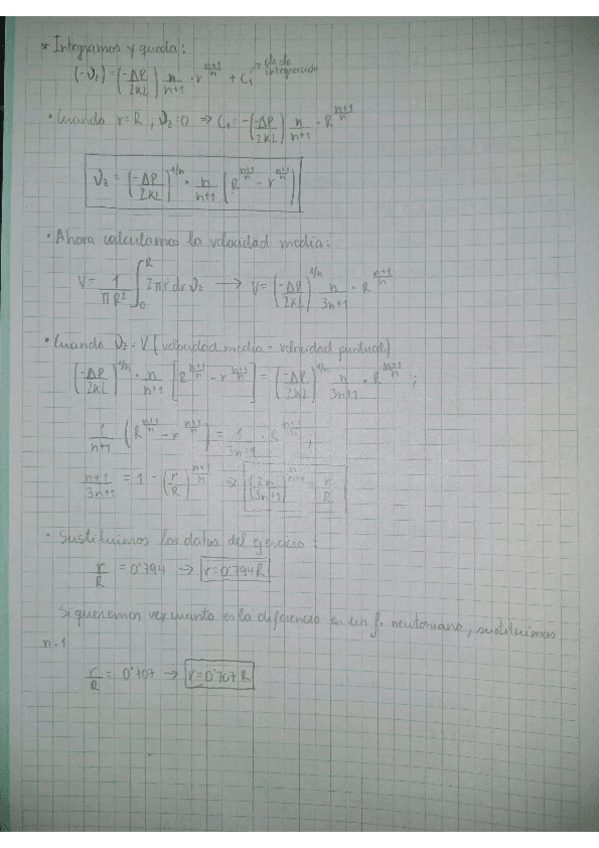 * Integramos y queda:
(-υ₂) = (-ΔP/2KL) n/n+1 · r^(n+1/n) + C₁ → cte de integración
• Cuando r=R ; υ₂=0 ⇒ C₁ = -(-ΔP/2KL) n/n+1 · R^(n+1/n)
υ₂ = (-ΔP/2KL)^(1/n) · n/n+1 [R^(n+1/n) - r^(n+1/n)]
• Ahora calculamos la velocidad media:
V = 1/πR² ∫₀^R 2πr dr υ₂ → V = (-ΔP/2KL)^(1/n) n/3n+1 · R^(n+1/n)
• Cuando υ₂ = V (velocidad media = velocidad puntual)
(-ΔP/2KL)^(1/n) · n/n+1 [R^(n+1/n) - r^(n+1/n)] = (-ΔP/2KL)^(1/n) n/3n+1 · R^(n+1/n) ;
1/n+1 (R^(n+1/n) - r^(n+1/n)) = 1/3n+1 · R^(n+1/n) ;
n+1/3n+1 = 1 - (r/R)^(n+1/n) ⇒ (2n/3n+1)^(n/n+1) = r/R
• Sustituimos los datos del ejercicio:
r/R = 0'794 → r=0'794R
Si queremos ver cuanto es la diferencia en un f. newtoniano, sustituimos
n=1
r/R = 0'707 → r=0'707R